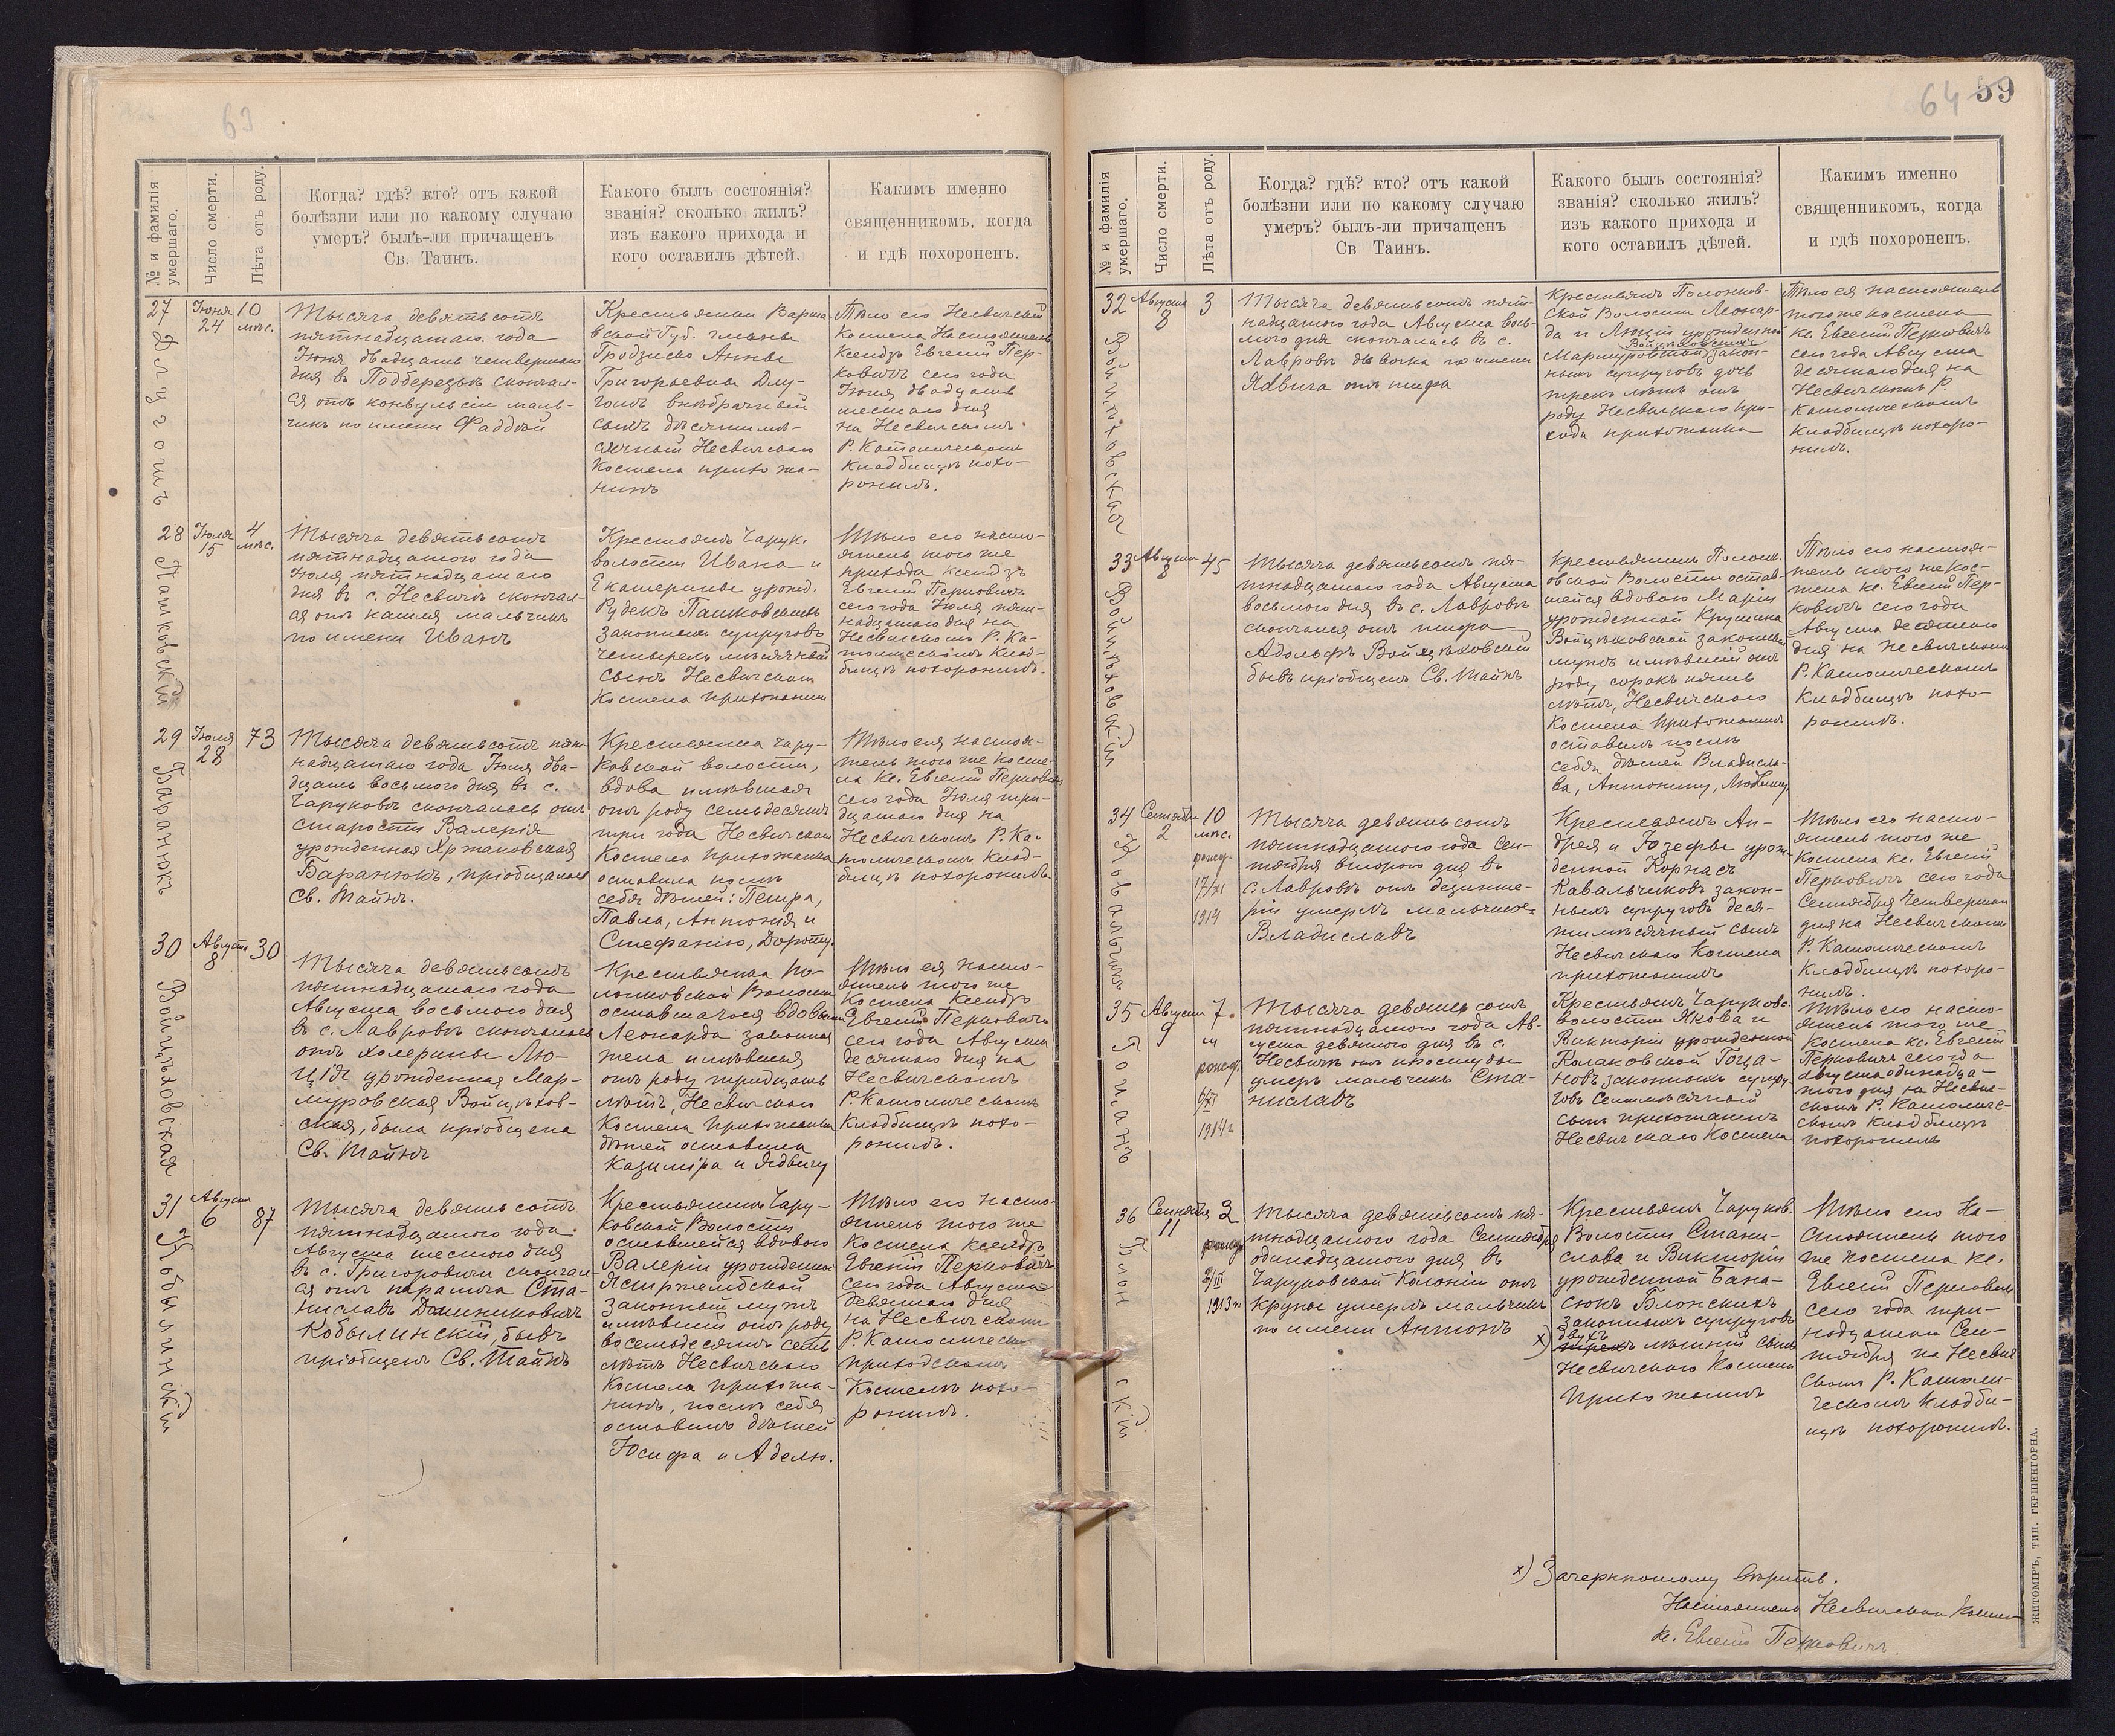 63
№ и фамилія умершаго.
Число смерти.
Лѣта отъ роду.
Когда? гдѣ? кто? отъ какой
болѣзни или по какому случаю
умеръ? былъ-ли причащенъ
Св. Таинъ.
Какого былъ состоянія?
званія? сколько жилъ?
изъ какого прихода и
кого оставилъ дѣтей.
Какимъ именно
священникомъ, когда
и гдѣ похороненъ.
27
Длугошъ
Іюня 24
10 мѣс.
Тысяча девятьсотъ
пятнадцатаго года
Іюня двадцать четвертаго
дня въ Подберезьѣ скончал-
ся отъ конвульсіи маль-
чикъ по имени Фаддей
Крестьянки Варша
вской Губ. гмины
Гродзиско Анны
Григорьевны Длу-
гошъ внѣбрачный
сынъ десятимѣ-
сячный Несвичскаго
Костела прихожа-
нинъ
Тѣло его Несвичскаго
Костела Настоятель
Ксендзъ Евгеній Пер-
ковичъ сего года
Іюня двадцать
шестаго дня
на Несвичскомъ
Р. Католическомъ
кладбищѣ похо-
ронилъ.
28
Папковскій
Іюля 15
4 мѣс.
Тысяча девятьсотъ
пятнадцатаго года
Іюля пятнадцатаго
дня въ с. Несвичѣ скончал-
ся отъ кашля мальчикъ
по имени Иванъ
Крестьянъ Чарук.
волости Ивана и
Екатерины урожд.
Рудекъ Папковскихъ
законныхъ супруговъ
четырехъ мѣсячный
сынъ Несвичскаго
Костела прихожанинъ
Тѣло его насто-
ятель того же
прихода ксендзъ
Евгеній Перковичъ
сего года Іюля пят-
надцатаго дня на
Несвичскомъ Р. Ка-
толическомъ клад-
бищѣ похоронилъ.
29
Баранюкъ
Іюля 28
73
Тысяча девятьсотъ пят-
надцатаго года Іюля два-
дцать восьмого дня въ с.
Чаруковѣ скончалась отъ
старости Валерія
урожденная Хржановская
Баранюкъ, пріобщалась
Св. Тайнъ.
Крестьянка Чару-
ковской волости,
вдова имѣвшая
отъ роду семьдесятъ
три года Несвичскаго
Костела прихожанка
оставила послѣ
себя дѣтей: Петра,
Павла, Антонія и
Стефанію, Дороту.
Тѣло ея настоя-
тель того же косте-
ла кс. Евгеній Перковичъ
сего года Іюля три-
дцатаго дня на
Несвичскомъ Р. Ка-
толическомъ клад-
бищѣ похоронилъ
30
Войцѣховская
Августа 8
30
Тысяча девятьсотъ
пятнадцатаго года
Августа восьмого дня
въ с. Лавровѣ скончалась
отъ холерины Лю-
ція урожденная Мар-
муровская Войцѣхов-
ская, была пріобщена
Св. Тайнъ
Крестьянка По-
лонковской Волости
оставшагося вдовымъ
Леонарда законная
жена имѣвшая
отъ роду тридцать
лѣтъ, Несвичскаго
Костела прихожанка
дѣтей оставила
Казиміра и Ядвигу
Тѣло ея насто-
ятель того же
Костела Ксендзъ
Евгеній Перковичъ
сего года Августа
десятаго дня на
Несвичскомъ
Р. Католическомъ
кладбищѣ похо-
ронилъ.
31
Кобылинскій
Августа 6
87
Тысяча девятьсотъ
пятнадцатаго года
Августа шестого дня
въ с. Григоровичи скончал-
ся отъ паралича Ста-
ниславъ Доминиковичъ
Кобылинскій, бывъ
пріобщенъ Св. Тайнъ
Крестьянинъ Чару-
ковской Волости
оставшейся вдовою
Валеріи урожденной
Ястржембской
законный мужъ
имѣвшій отъ роду
восемьдесятъ семь
лѣтъ Несвичскаго
Костела прихожа-
нинъ, послѣ себя
оставилъ дѣтей
Юсифа и Аделю.
Тѣло его насто-
ятель того же
костела ксендзъ
Евгеній Перковичъ
сего года Августа
девятаго дня
на Несвичскомъ
Р. Католическомъ
приходскомъ
Костелѣ похо-
ронилъ.
64 59
№ и фамилія умершаго.
Число смерти.
Лѣта отъ роду.
Когда? гдѣ? кто? отъ какой
болѣзни или по какому случаю
умеръ? былъ-ли причащенъ
Св Таинъ.
Какого былъ состоянія?
званія? сколько жилъ?
изъ какого прихода и
кого оставилъ дѣтей.
Какимъ именно
священникомъ, когда
и гдѣ похороненъ.
32
Войцѣховская
Августа 8
3
Тысяча девятьсотъ пят-
надцатаго года Августа вось-
мого дня скончалась въ с.
Лавровѣ дѣвочка по имени
Ядвига отъ тифа
Крестьянъ Полонков-
ской Волости Леонар-
да и Люціи урожденной
Войцѣховскихъ
Мармуровской закон-
ныхъ супруговъ дочь
трехъ лѣтъ отъ
роду Несвичскаго при-
хода прихожанка
Тѣло ея настоятель
того же костела
кс. Евгеній Перковичъ
сего года Августа
десятаго дня на
Несвичскомъ Р.
Католическомъ
кладбищѣ похоро-
нилъ.
33
Войцѣховскій
Августа 8
45
Тысяча девятьсотъ пя-
тнадцатаго года Августа
восьмого дня въ с. Лавровѣ
скончался отъ тифа
Адольфъ Войцѣховскій
бывъ пріобщенъ Св. Тайнъ
Крестьянинъ Полонк.
овской Волости остав-
шейся вдовою Маріи
урожденной Крушина
Войцѣховской законный
мужъ имѣвшій отъ
роду сорокъ пять
лѣтъ, Несвичскаго
Костела прихожанинъ
оставилъ послѣ
себя дѣтей Владисла-
ва, Антонину, Людвику
Тѣло его настоя-
тель того же кос-
тела кс. Евгеній Пер-
ковичъ сего года
Августа десятаго
дня на Несвичскомъ
Р. Католическомъ
кладбищѣ похо-
ронилъ.
34
Ковальчикъ
Сентября 2
10 мѣс.
рожд.
17/XI
1914
Тысяча девятьсотъ
пятнадцатаго года Сен-
тября второго дня въ
с. Лавровѣ отъ дезинте-
ріи умеръ мальчикъ
Владиславъ
Крестьянъ Ан-
дрея и Юзефы урож-
денной Корнасъ
Кавальчиковъ закон-
ныхъ супруговъ деся-
тимѣсячный сынъ
Несвичскаго Костела
прихожанинъ
Тѣло его насто-
ятель того же
Костела кс. Евгеній
Перковичъ сего года
Сентября четвертаго
дня на Несвичскомъ
Р. Католическомъ
кладбищѣ похоро-
нилъ.
35
Гоцанъ
Августа 9
7.
м
рожд.
1914 г
Тысяча девятьсотъ
пятнадцатаго года Ав-
густа девятого дня въ с.
Несвичѣ отъ простуды
умеръ мальчикъ Ста-
ниславъ
Крестьянъ Чаруковс.
волости Якова и
Викторіи урожденной
Колаковской Гоца-
новъ законныхъ супру-
говъ семимѣсячный
сынъ прихожанинъ
Несвичскаго Костела
Тѣло его насто-
ятель того же
костела кс. Евгеній
Перковичъ сего года
августа одинадца-
таго дня на Несвич-
скомъ Р. Католиче-
скомъ кладбищѣ
похоронилъ
36
Блонскій
Сентября 11
2
рожд
2/III
1913 г
Тысяча девятьсотъ пя-
тнадцатаго года Сентября
одинадцатаго дня въ
Чаруковской Колоніи отъ
крупы умеръ мальчикъ
по имени Антонъ
Крестьянъ Чаруков.
Волости Стани-
слава и Викторіи
урожденной Бана-
сюкъ Блонскихъ
законныхъ супруговъ
двухъ
х) трехъ лѣтній сынъ
Несвичскаго Костела
Прихожанинъ
Тѣло его На-
стоятель того
же костела кс.
Евгеній Перковичъ
сего года три-
надцатаго Сен-
тября на Несвич
скомъ Р. Католи-
ческомъ кладби-
щѣ похоронилъ.
х) Зачеркнотому вѣрить.
Настоятель Несвичскаго Костела
кс. Евгеній Перковичъ
ЖИТОМІРЪ, ТИП. ГЕРШЕНГОРНА.